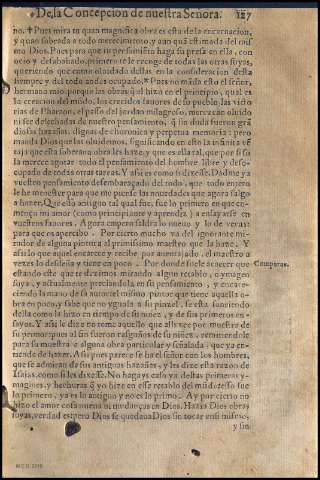 De la Concepcion de nuestra Señora. 127
no. Pues mira tu quan magnifica obra es esta de la encarnacion,
y quan subeada a todo merecimiento, y aun quã estimada del mis
mo Dios. Pues para que tu pensamiẽto haga su presa en ella, con
ocio y desabahado, primero te le recoge de todas las otras suyas,
queriendo que como oluidado dellas en la consideracion desta
siempre y del todo andes ocupado. Pues no mãda esto el señor,
hermano mio, porque las obras q̃ el hizo en el principio, qual es
la creacion del mũdo, los crecidos fauores de su pueblo, las victo
rias de Pharaon, el passo del jordan milagroso, merezcan oluido
ni ser desechadas de nuestro pensamiento, q̃ sin duda fueron grã
diosas hazañas, dignas de choronica y perpetua memoria: pero
manda Dios que las oluidemos, significando en esto la infinita vẽ
taja que esta soberana obra les haze, y que es ella tal, que por si so
la merece agotar todo el pensamiento del hombre libre y deso-
cupado de todas otras tareas. Y assi es como si dixesse. Dadme ya
vuestro pensamiento desembaraçado del todo, que todo entero
le he menester para que me puerse las nouedades que agora salgo
a hazer. Que essi antiguo tal qual fue, fue lo primero en que co-
mençò mi amor (como principiante y aprendiz) a ensayarse en
vuestros fauores. Agora empero saldra lo nueuo y lo de veras:
para que es apercibo. Por cierto mucho va del ignorante mi-
rador de alguna pintura al primissimo maestro que la haze. Y
assi lo que aquel encarece y recibe por auentajado, el maestro a
vezes lo desdeña y tiene en poco. Por donde suele acaecer que
estando este que te dezimos mirando algun retablo, o ymagen
suya, y actualmente preciandola en su pensamiento, y encare-
ciendo la mano de su autor el mismo pintor que tiene aquella o-
bra en poco, y sabe que no yguala a su pinzel, se esta sonriendo
della como la hizo en tiempo de su niñez, y de sus primeros en-
sayos. Y assi le dize no tome aquello que alli vee por muestra de
su primor, pues al fin fueron rasguños de su niñez, remitiendole
para su muestra a alguna obra particular y señalada, que ya en-
tiende de hazer. Assi pues parece se ha el señor con los hombres,
que se admiran de sus antiguas hazañas, y les dize esta razon de
Isaias, como si les dixesse. No hagays caso ya destas primeras y-
magines, y hechuras q̃ yo hize en esse retablo del mũdo: esso fue
lo primero, ya es lo antiguo y no es lo primo. Ay por cierto no
hizo el amor cosa nueua ni mudanças en Dios. Hazas Dios obras
suyas, verdad es; pero Dios se quedaua Dios sin tocar en si mismo,
y sin
Comparas.